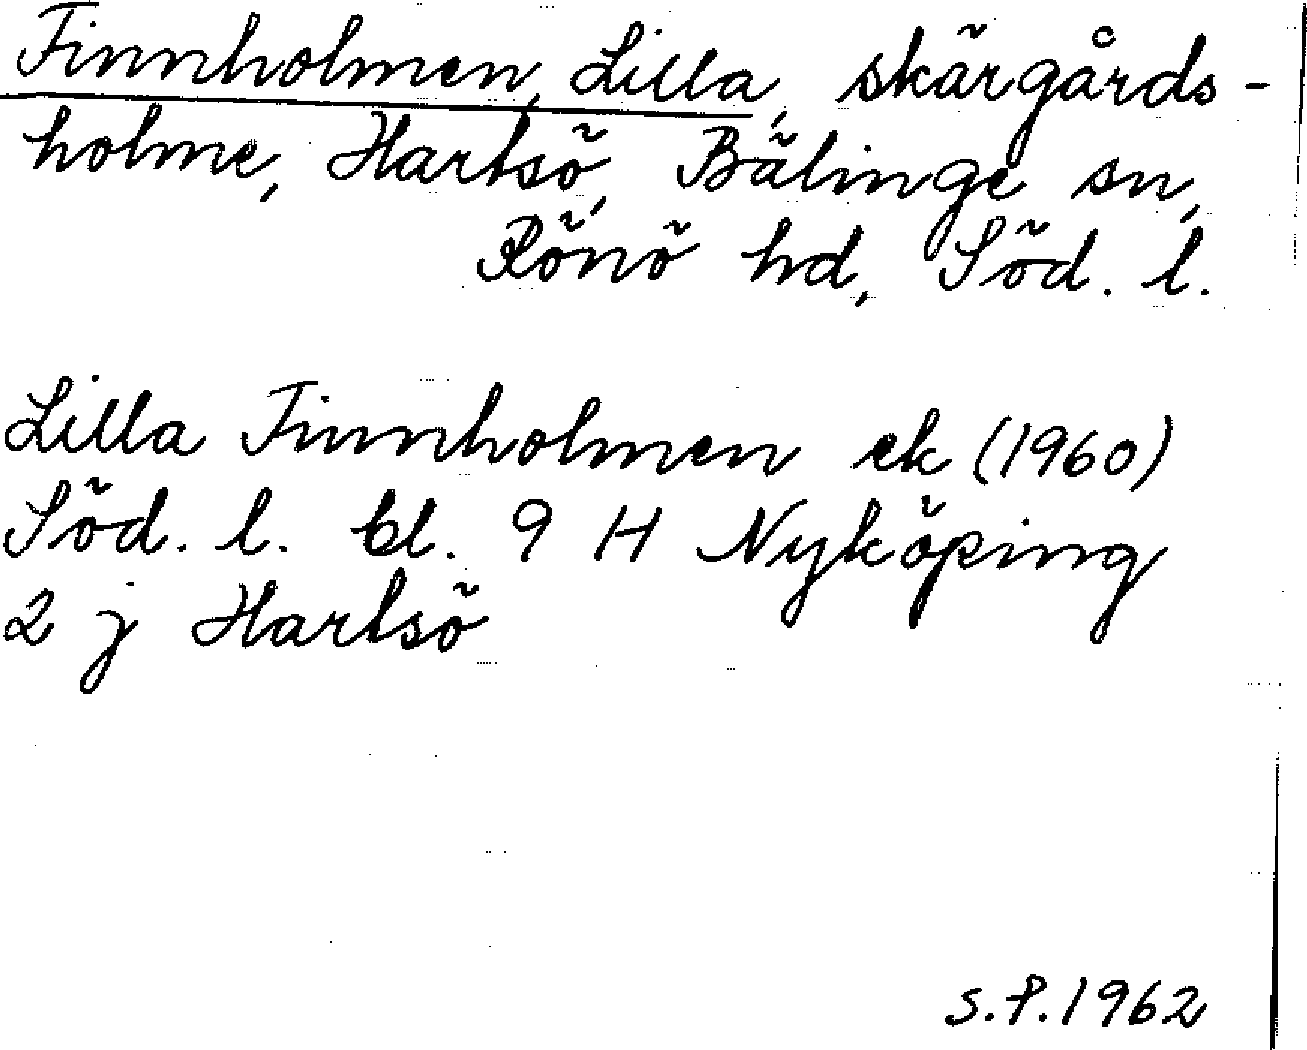 Finnholmen, Lilla, skärgårds-
holme, Hartsö, Bälinge sn,
Rönö hd, Söd. l.
Lilla Finnholmen ek (1960)
Söd. l. bl. 9 H Nyköping
2 j Hartsö
S.P. 1962